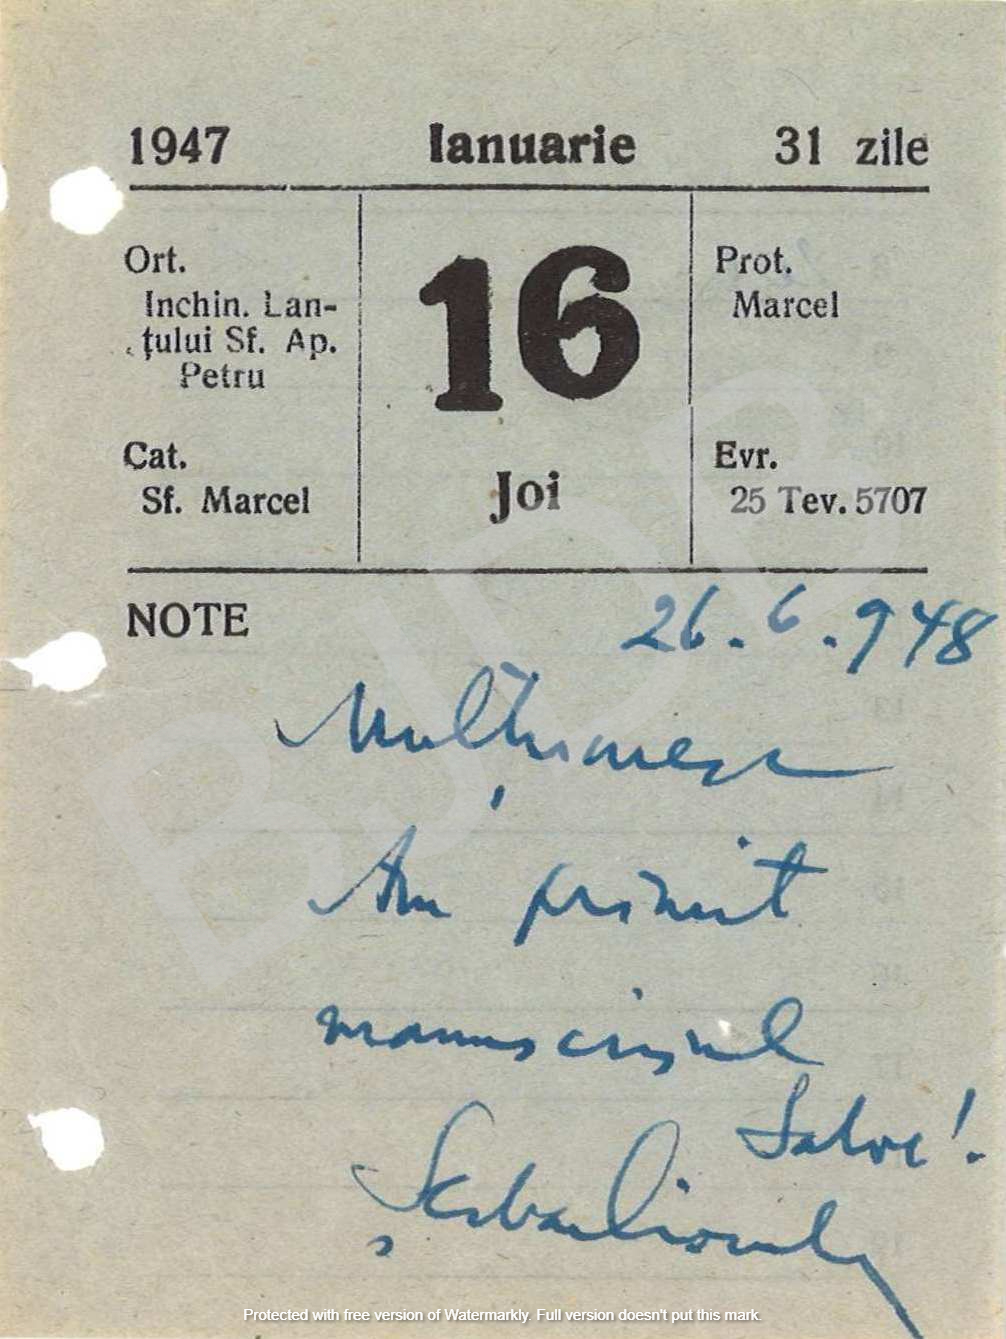 1947 Ianuarie 31 zile
Ort.
Inchin. Lan-
țului Sf. Ap.
Petru
Cat.
Sf. Marcel
16
Joi
Prot.
Marcel
Evr.
25 Tev. 5707
NOTE
26.6.948
Mulțumesc
Am primit
manuscrisul
Salve!
Protected with free version of Watermarkly. Full version doesn't put this mark.